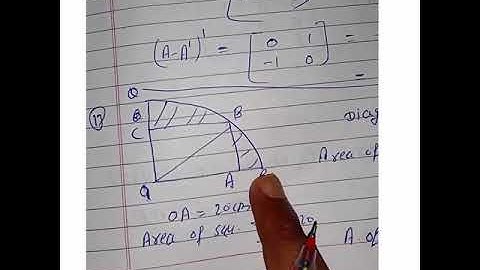 (A-A')' = [ 0 1
-1 0 ] =
Q.
17
B
C
B
Q
A
Diag
Area of
OA = 20
Area of squ. =
A of